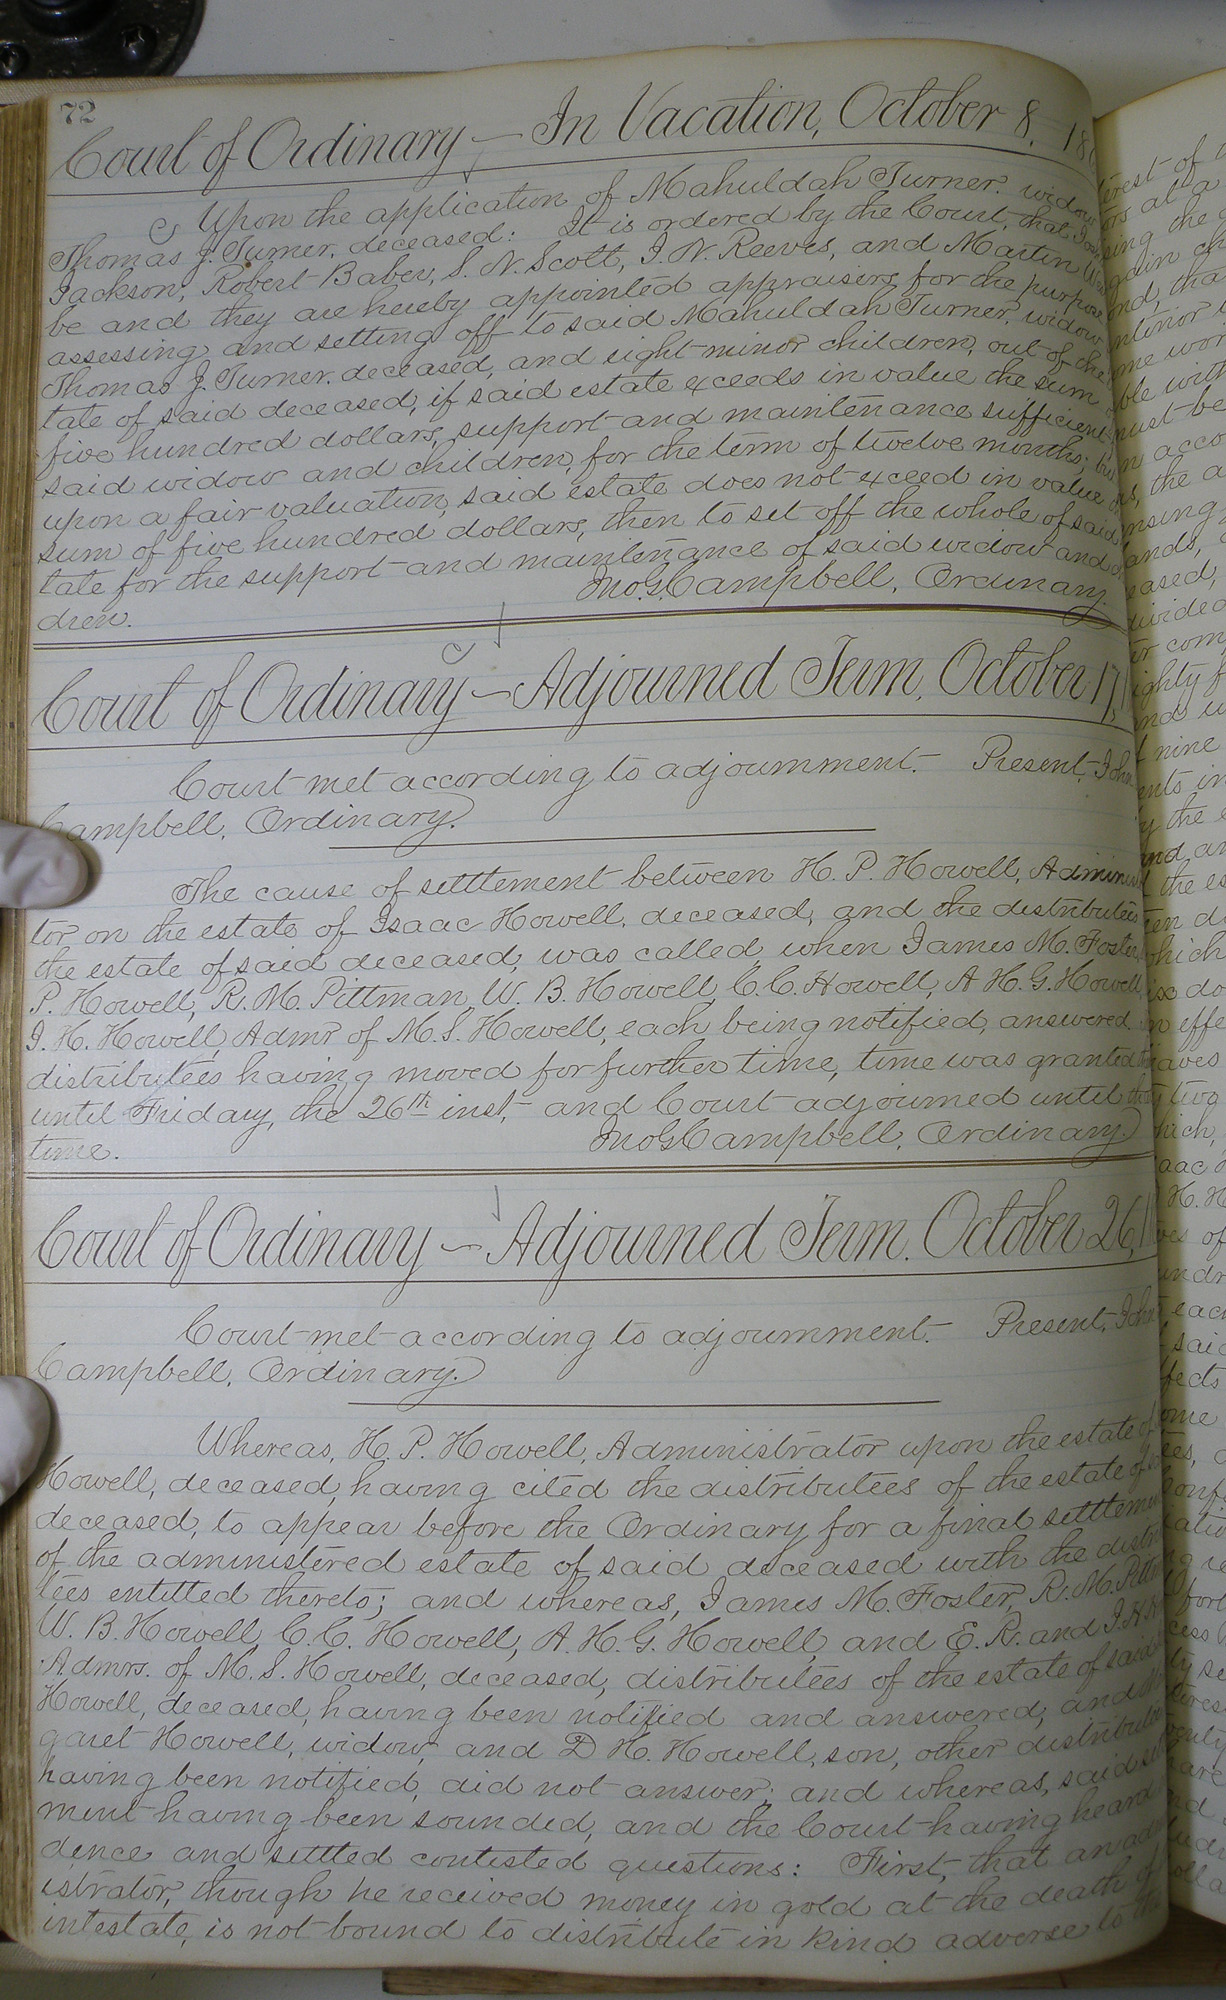 72
Court of Ordinary — In Vacation, October 8, 18
Upon the application of Mahuldah Turner, widow
Thomas J. Turner, deceased: It is ordered by the Court, that
Jackson, Robert Baber, S. N. Scott, J. N. Reeves, and Martin
be and they are hereby appointed appraisers for the purpose
assessing and setting off to said Mahuldah Turner, widow
Thomas J. Turner, deceased, and eight minor children, out of the
tate of said deceased, if said estate exceeds in value the sum
five hundred dollars, support and maintenance sufficient
said widow and children, for the term of twelve months; but
upon a fair valuation, said estate does not exceed in value
sum of five hundred dollars, then to set off the whole of said
tate for the support and maintenance of said widow and
dren. Jno. G. Campbell, Ordinary.
Court of Ordinary — Adjourned Term, October 17, 1
Court met according to adjournment. Present, John
Campbell, Ordinary.
The cause of settlement between H. P. Howell, Adminis
tor on the estate of Isaac Howell, deceased, and the distributees
the estate of said deceased, was called, when James M. Foster,
P. Howell, R. M. Pittman, W. B. Howell, C. C. Howell, A. H. G. Howell
J. H. Howell, Admr of M. S. Howell, each being notified, answered.
distributees having moved for further time, time was granted
until Friday, the 26th inst, and Court adjourned until that
time. Jno. G. Campbell, Ordinary.
Court of Ordinary — Adjourned Term, October 26, 1
Court met according to adjournment. Present, John
Campbell, Ordinary.
Whereas, H. P. Howell, Administrator upon the estate of
Howell, deceased, having cited the distributees of the estate of
deceased, to appear before the Ordinary for a final settlem
of the administered estate of said deceased with the distri
tees entitled thereto; and whereas, James M. Foster, R. M. Pittm
W. B. Howell, C. C. Howell, A. H. G. Howell, and E. R. and J. H.
Admrs. of M. S. Howell, deceased, distributees of the estate of said
Howell, deceased, having been notified and answered, and
garet Howell, widow, and D. H. Howell, son, other distributees
having been notified, did not answer; and whereas, said
ment having been sounded, and the Court having heard
dence and settled contested questions: First, that an
istrator, though he received money in gold at the death of
intestate, is not bound to distribute in kind adverse to